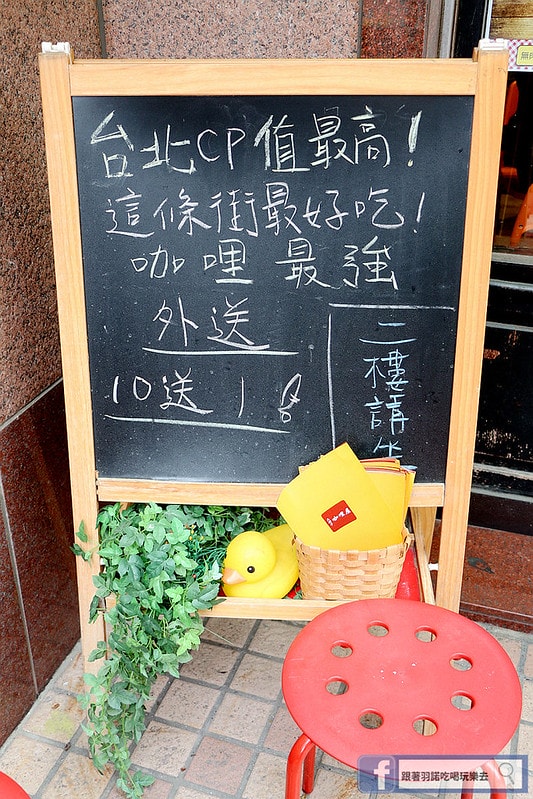 台北CP值最高！
這條街最好吃！
咖哩最強
外送
10送1
二樓講坐
跟著羽諾吃喝玩樂去